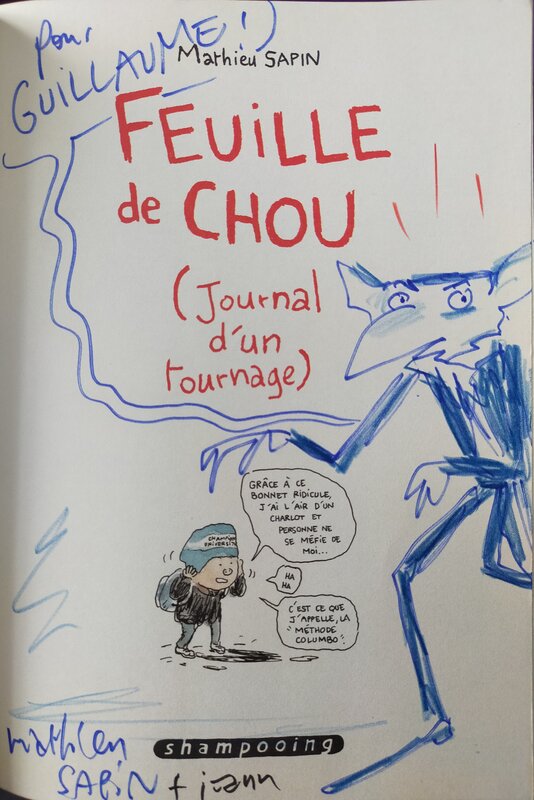 pour
GUILLAUME!)
Mathieu SAPIN
FEUILLE
de CHOU
(Journal
d'un
tournage)
GRÂCE À CE
BONNET RIDICULE,
J'AI L'AIR D'UN
CHARLOT ET
PERSONNE NE
SE MÉFIE DE
MOI...
HA
HA
C'EST CE QUE
J'APPELLE, LA
"MÉTHODE
COLUMBO".
mathieu
shampooing
SAPIN +